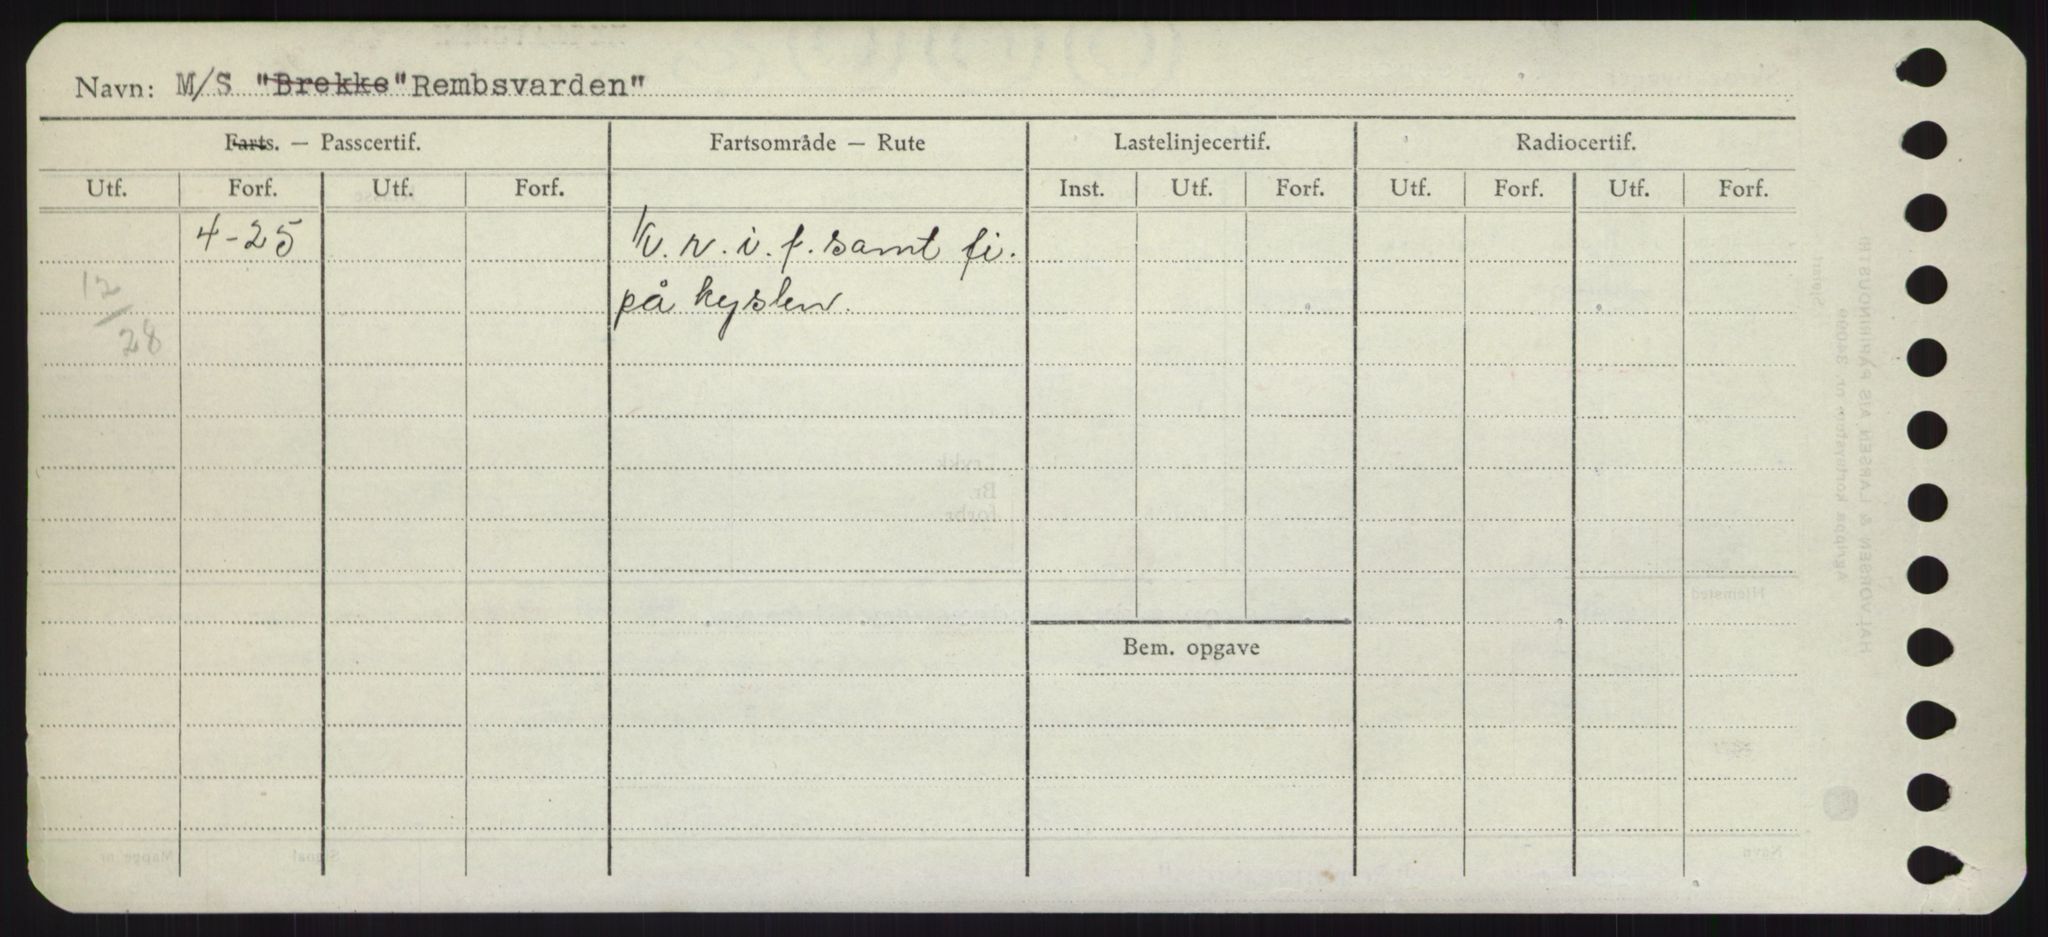 Navn: M/S "Brekke" Rembsvarden"
Farts. — Passcertif. Fartsområde — Rute Lastelinjecertif. Radiocertif.
Utf. Forf. Utf. Forf. Inst. Utf. Forf. Utf. Forf. Utf. Forf.
4-25 r. i. f. samt fi.
12/28 på kysten.
Bem. opgave